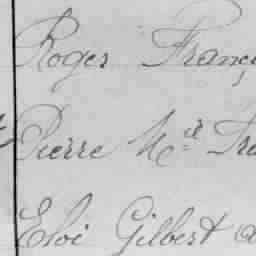 Roger Franç
Pierre
Eloi Gilbert